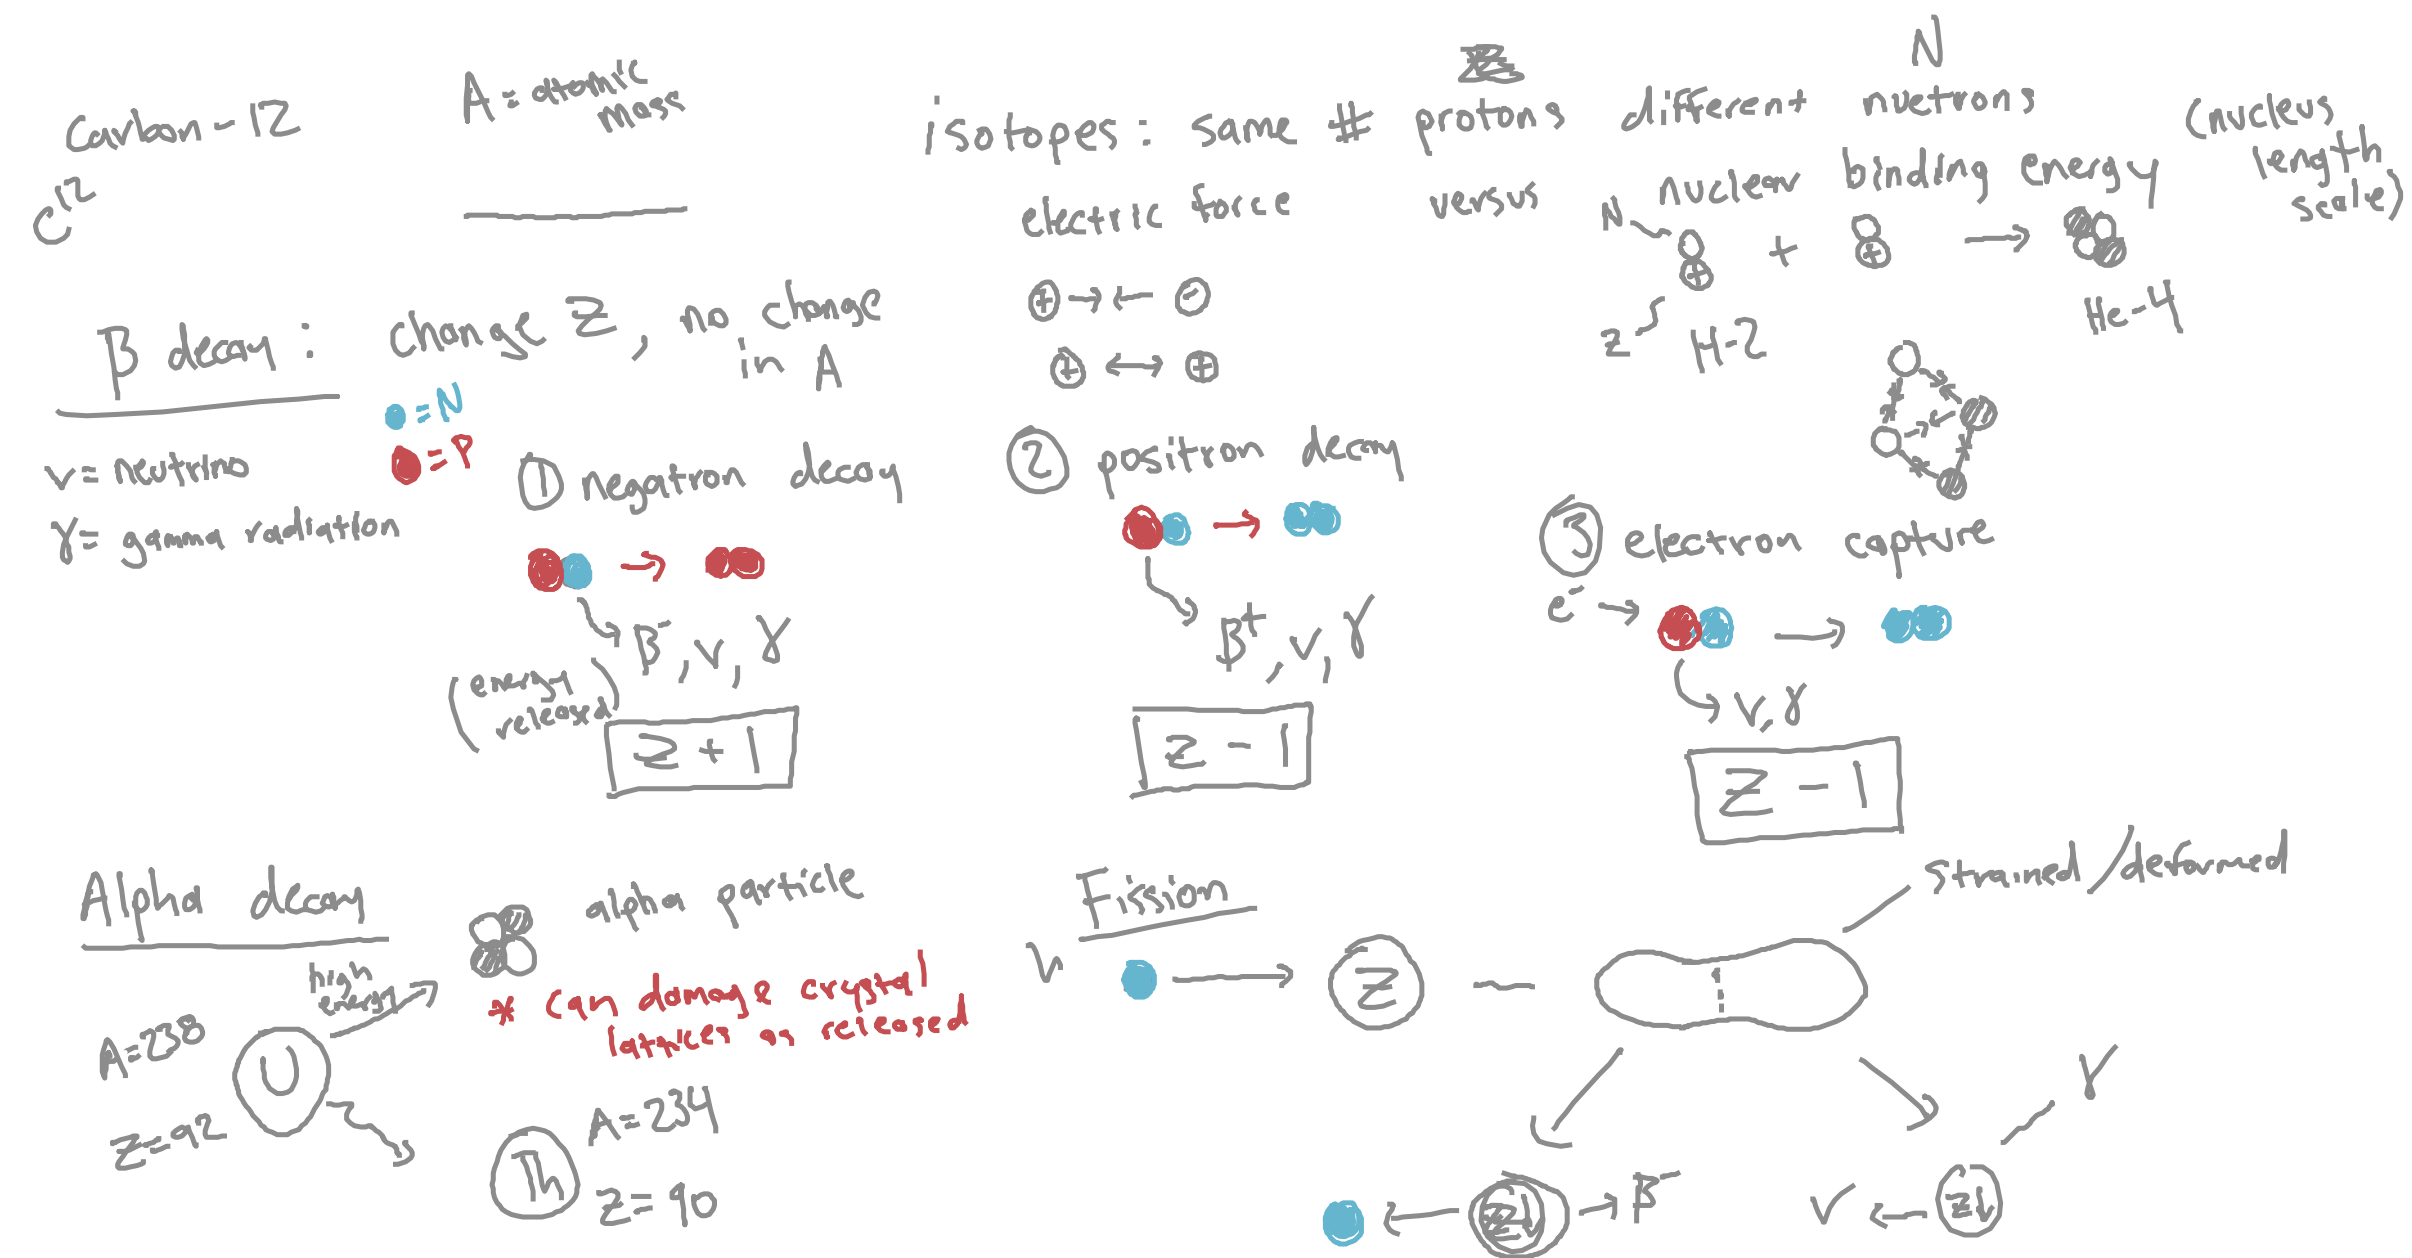 Carbon-12
C12
A = atomic
mass
N
isotopes: same # protons different nuetrons
electric force versus nuclear binding energy
(nucleus
length
scale)
+ -
+ +
N
Z
H-2
+ + +
He-4
β decay: change Z, no change
in A
= N
= P
ν = neutrino
γ = gamma radiation
① negatron decay
β-, ν, γ
(energy
released)
Z + 1
② positron decay
β+, ν, γ
Z - 1
③ electron capture
e-
ν, γ
Z - 1
Alpha decay
alpha particle
high
energy
* can damage crystal
lattices as released
A=238
U
Z=92
A=234
Th
Z=90
Fission
strained/deformed
ν
Z
γ
β-
ν